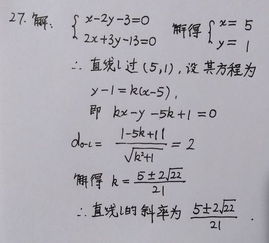 27. 解: { x-2y-3=0 解得 { x= 5
2x+3y-13=0 y= 1
∴ 直线l过 (5,1), 设其方程为
y-1=k(x-5),
即 kx-y-5k+1=0
d₀₋ₗ= |-5k+1| / √(k²+1) = 2
解得 k= (5±2√22) / 21
∴ 直线l的斜率为 (5±2√22) / 21 .